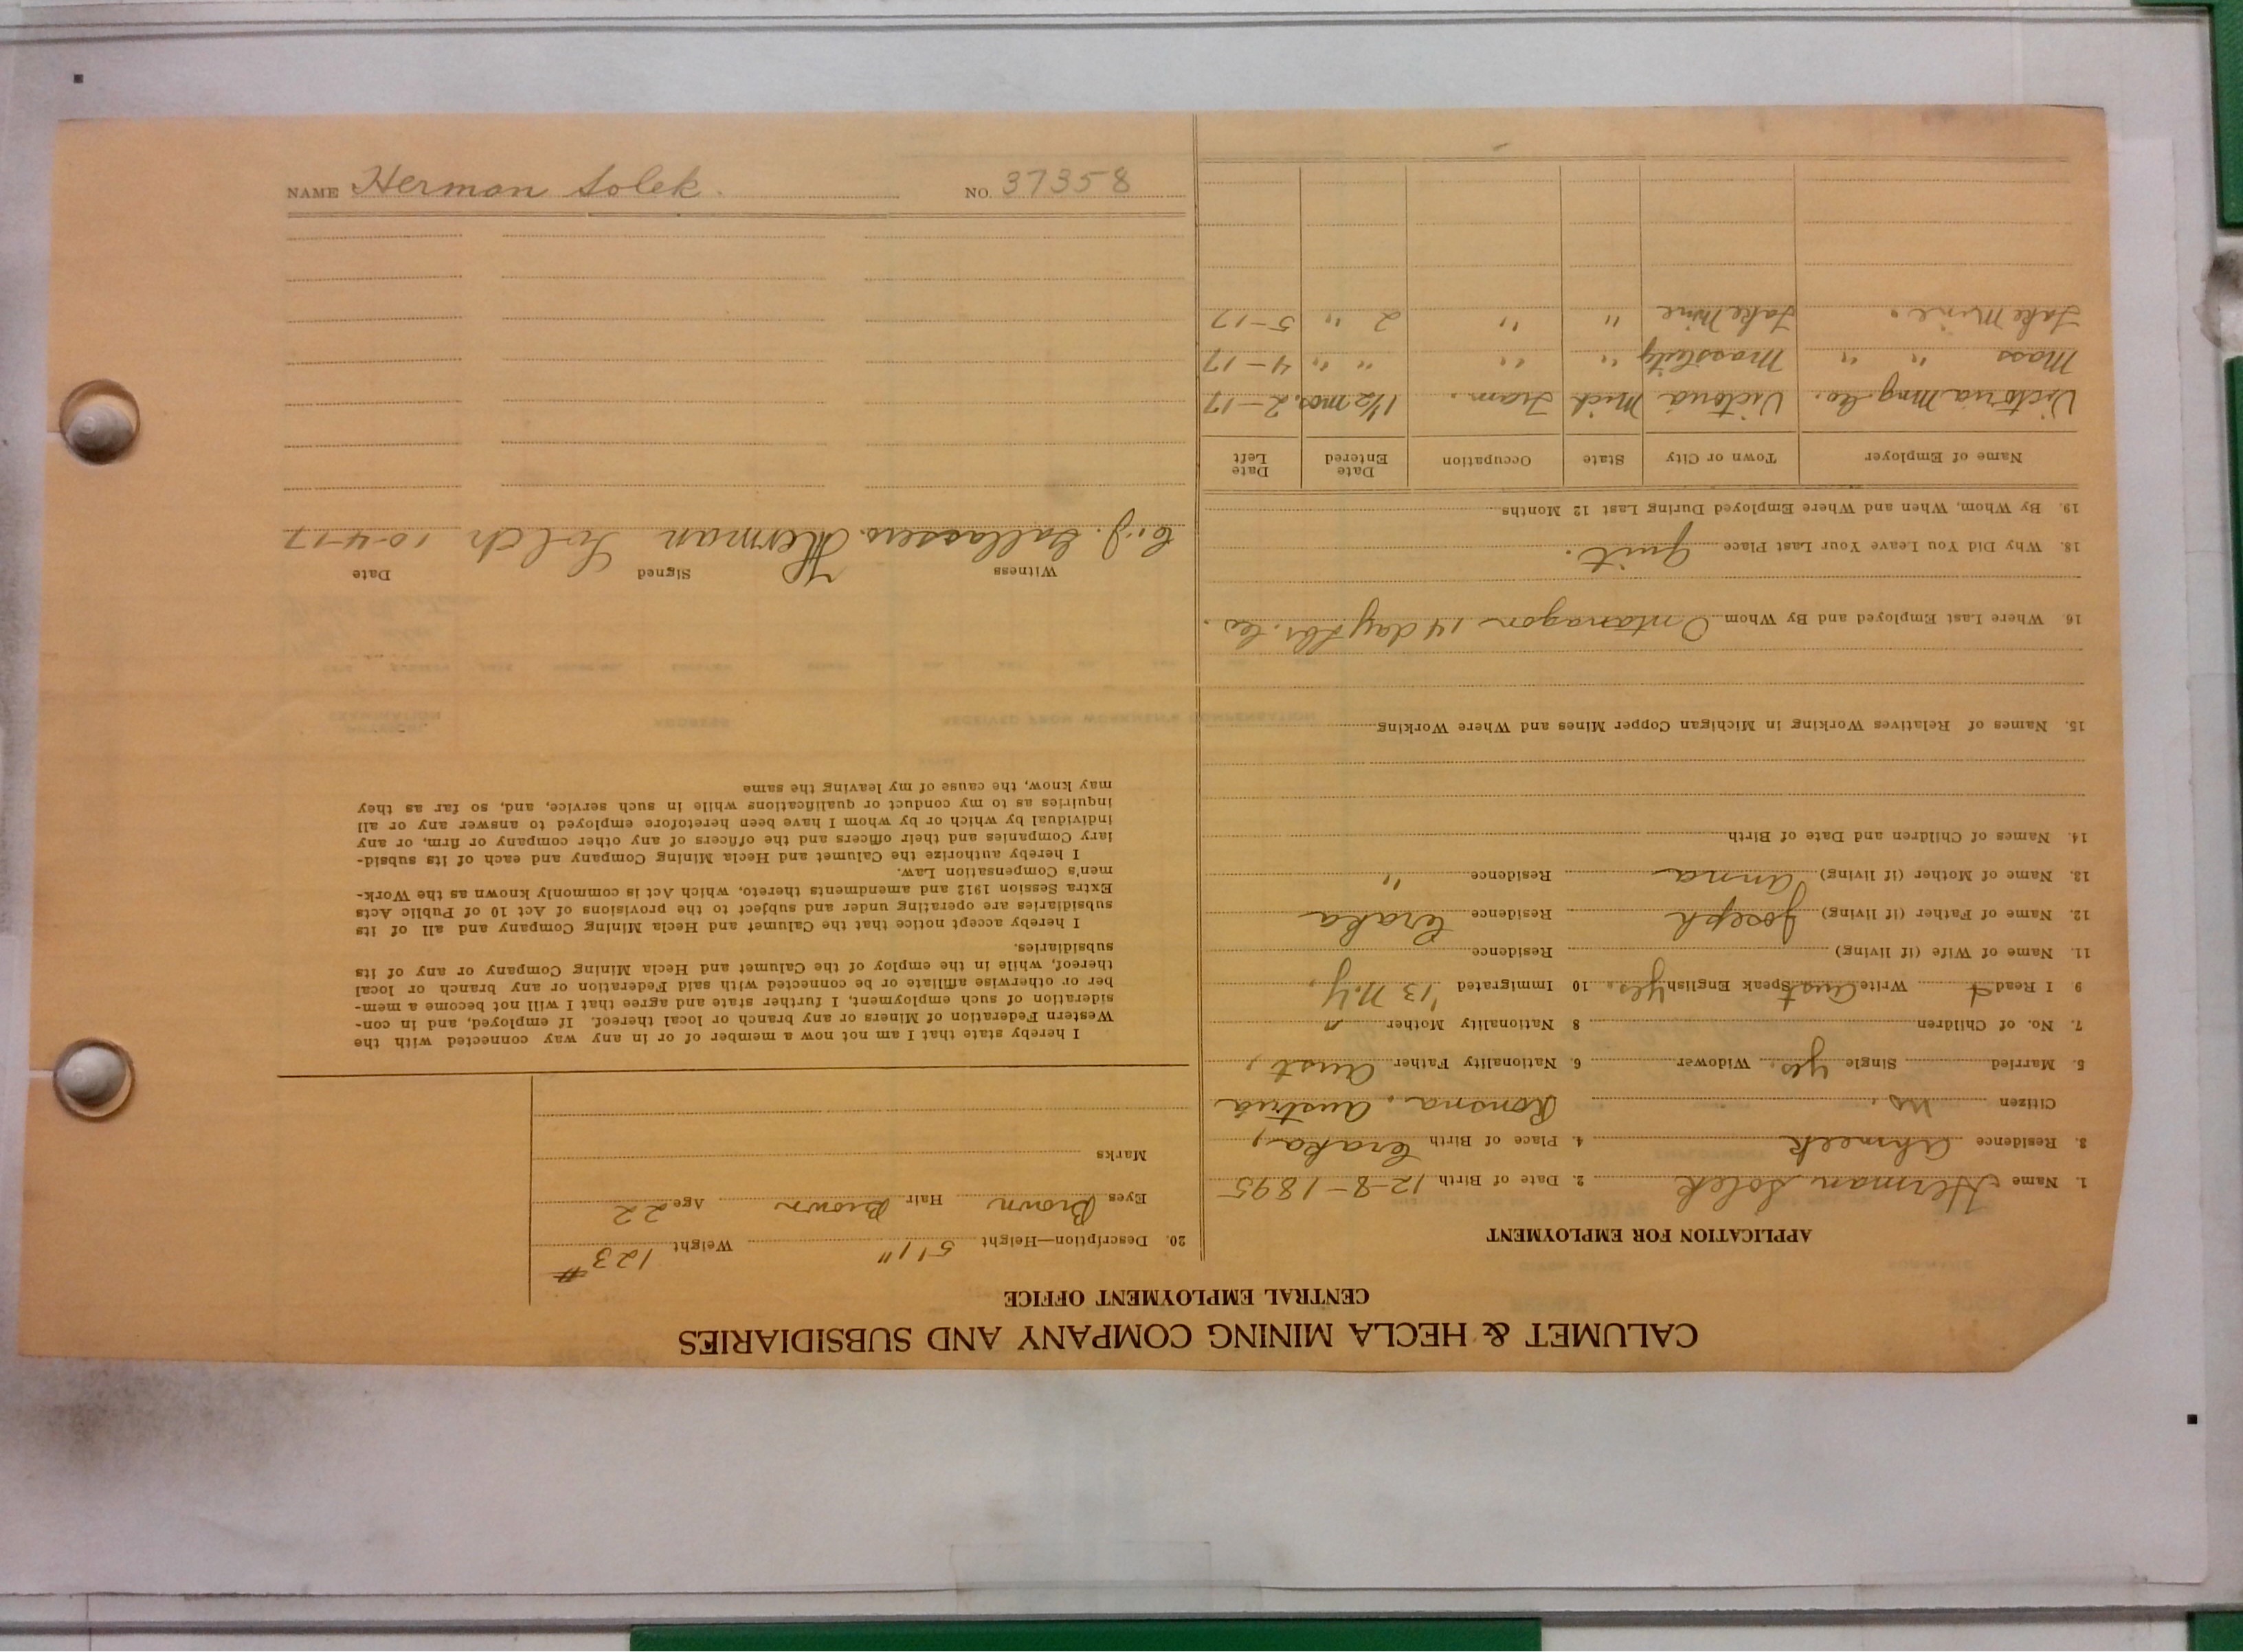 CALUMET & HECLA MINING COMPANY AND SUBSIDIARIES
CENTRAL EMPLOYMENT OFFICE
APPLICATION FOR EMPLOYMENT
1. Name Herman Solek 2. Date of Birth 12-8-1895
3. Residence Ahmeek 4. Place of Birth Craka,
Citizen no. Ronona, Austria
5. Married Single yes. Widower 6. Nationality Father Aust,
7. No. of Children 8 Nationality Mother "
9 I Read Write Aust Speak English yes. 10 Immigrated '13 N.Y.
11. Name of Wife (if living) Residence
12. Name of Father (if living) Joseph Residence Craka
13. Name of Mother (if living) Anna Residence "
14. Names of Children and Date of Birth
15. Names of Relatives Working in Michigan Copper Mines and Where Working
16. Where Last Employed and By Whom Ontanagon 14 day Lbr. Co.
18. Why Did You Leave Your Last Place quit.
19. By Whom, When and Where Employed During Last 12 Months
Name of Employer Town or City State Occupation Date Entered Date Left
Victoria Mng. Co. Victoria Mich Tram. 1½ mos. 2-17
Mass " " Mass City " " " " 4-17
Lake Mine. Lake Mine " " 2 " 5-17
20. Description—Height 5'11" Weight 123#
Eyes Brown Hair Brown Age 22
Marks
I hereby state that I am not now a member of or in any way connected with the
Western Federation of Miners or any branch or local thereof. If employed, and in con-
sideration of such employment, I further state and agree that I will not become a mem-
ber or otherwise affiliate or be connected with said Federation or any branch or local
thereof, while in the employ of the Calumet and Hecla Mining Company or any of its
subsidiaries.
I hereby accept notice that the Calumet and Hecla Mining Company and all of its
subsidiaries are operating under and subject to the provisions of Act 10 of Public Acts
Extra Session 1912 and amendments thereto, which Act is commonly known as the Work-
men's Compensation Law.
I hereby authorize the Calumet and Hecla Mining Company and each of its subsid-
iary Companies and their officers and the officers of any other company or firm, or any
individual by which or by whom I have been heretofore employed to answer any or all
inquiries as to my conduct or qualifications while in such service, and, so far as they
may know, the cause of my leaving the same
Witness Signed Date
C. J. Herman Solch 10-4-17
NAME Herman Solek. NO. 37358